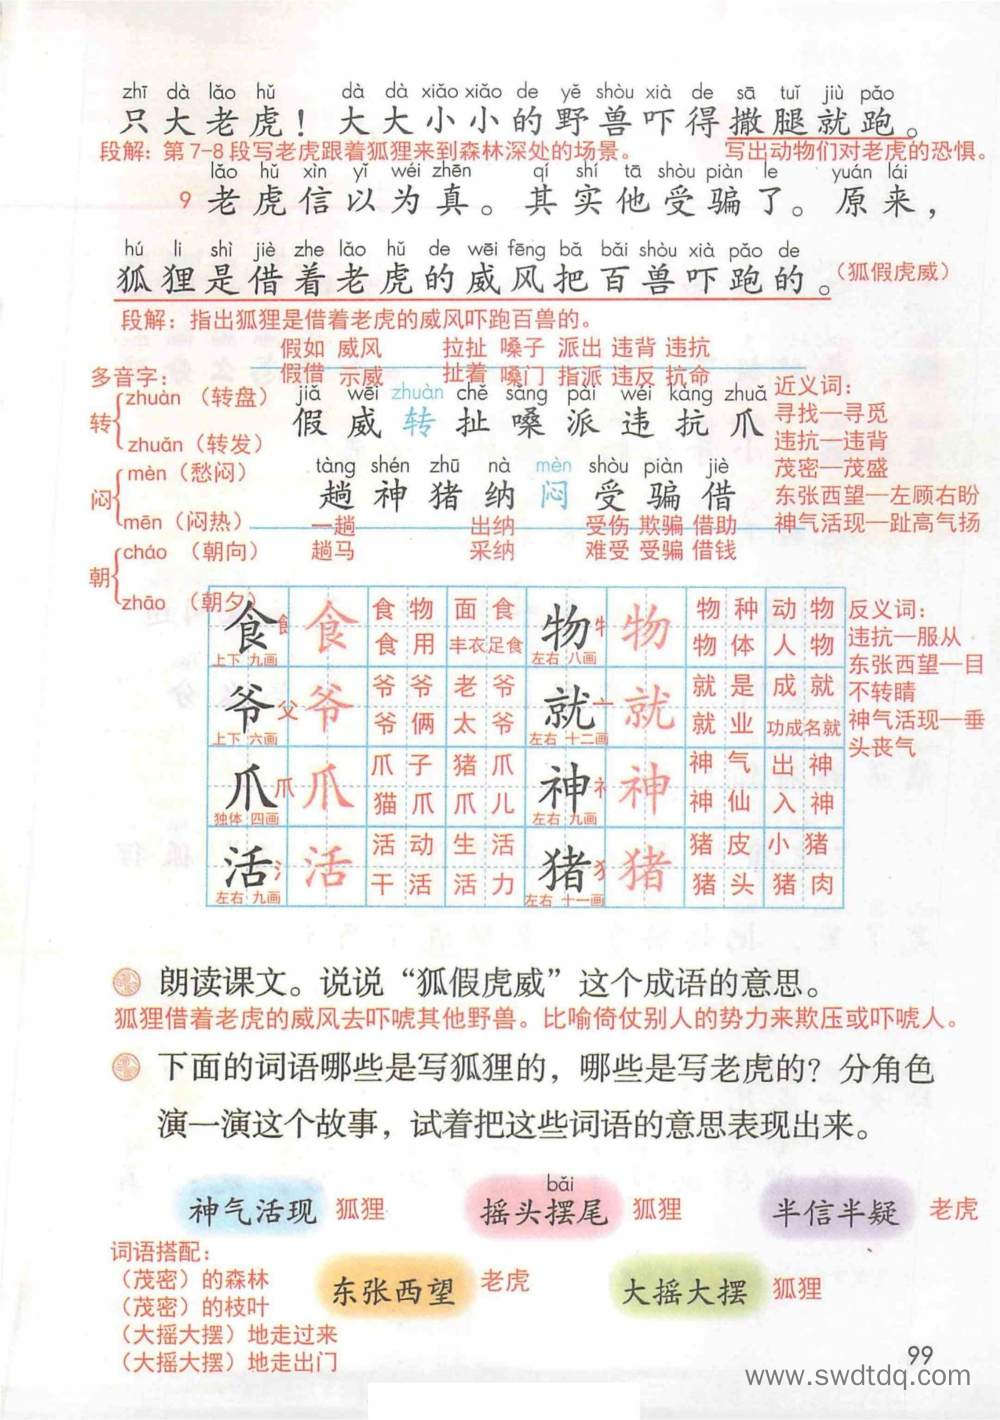 zhī dà lǎo hǔ dà dà xiǎo xiǎo de yě shòu xià de sā tuǐ jiù pǎo
只大老虎！大大小小的野兽吓得撒腿就跑。
段解：第7-8段写老虎跟着狐狸来到森林深处的场景。 写出动物们对老虎的恐惧。
lǎo hǔ xìn yǐ wéi zhēn qí shí tā shòu piàn le yuán lái
9 老虎信以为真。其实他受骗了。原来，
hú li shì jiè zhe lǎo hǔ de wēi fēng bǎ bǎi shòu xià pǎo de
狐狸是借着老虎的威风把百兽吓跑的。（狐假虎威）
段解：指出狐狸是借着老虎的威风吓跑百兽的。
假如 威风 拉扯 嗓子 派出 违背 违抗
假借 示威 扯着 嗓门 指派 违反 抗命
jiǎ wēi zhuàn chě sǎng pài wéi kàng zhuǎ
假威转扯嗓派违抗爪
tàng shén zhū nà mèn shòu piàn jiè
趟神猪纳闷受骗借
一趟 出纳 受伤 欺骗 借助
趟马 采纳 难受 受骗 借钱
多音字：
转
zhuàn（转盘）
zhuǎn（转发）
闷
mèn（愁闷）
mēn（闷热）
朝
cháo（朝向）
zhāo（朝夕）
近义词：
寻找—寻觅
违抗—违背
茂密—茂盛
东张西望—左顾右盼
神气活现—趾高气扬
食 饣 食 食物 面食 物 牜 物 物种 动物
上下 九画 食用 丰衣足食 左右 八画 物体 人物
爷 父 爷 爷爷 老爷 就 亠 就 就是 成就
上下 六画 爷俩 太爷 左右 十二画 就业 功成名就
爪 爪 爪 爪子 猪爪 神 礻 神 神气 出神
独体 四画 猫爪 爪儿 左右 九画 神仙 入神
活 氵 活 活动 生活 猪 犭 猪 猪皮 小猪
左右 九画 干活 活力 左右 十一画 猪头 猪肉
反义词：
违抗—服从
东张西望—目
不转睛
神气活现—垂
头丧气
朗读课文。说说“狐假虎威”这个成语的意思。
狐狸借着老虎的威风去吓唬其他野兽。比喻倚仗别人的势力来欺压或吓唬人。
下面的词语哪些是写狐狸的，哪些是写老虎的？分角色
演一演这个故事，试着把这些词语的意思表现出来。
bǎi
神气活现 狐狸 摇头摆尾 狐狸 半信半疑 老虎
东张西望 老虎 大摇大摆 狐狸
词语搭配：
（茂密）的森林
（茂密）的枝叶
（大摇大摆）地走过来
（大摇大摆）地走出门
99
www.swdtdq.com